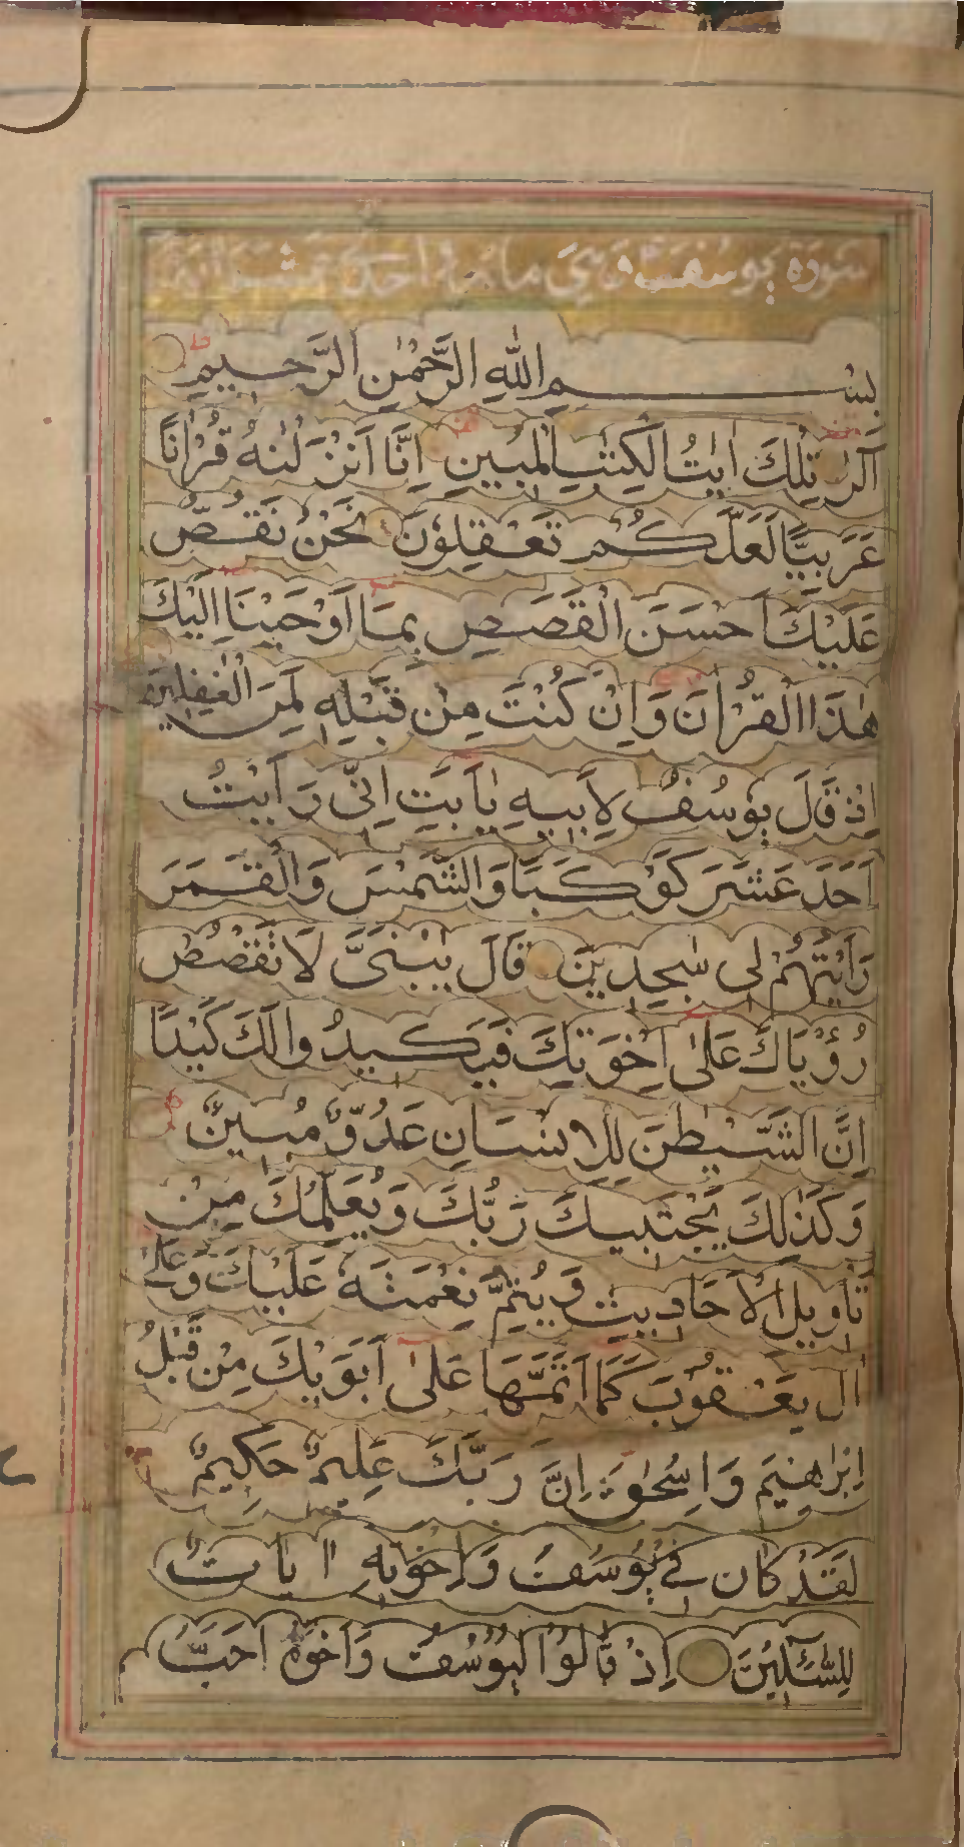 سورة يوسف وهي مائة واحدى عشر اية
بِسْمِ اللّٰهِ الرَّحْمٰنِ الرَّحِيمِ
الٓرٰ تِلْكَ اٰيٰتُ الْكِتٰبِ الْمُبِينِ اِنَّا اَنْزَلْنٰهُ قُرْاٰنًا
عَرَبِيًّا لَعَلَّكُمْ تَعْقِلُوْنَ نَحْنُ نَقُصُّ
عَلَيْكَ اَحْسَنَ الْقَصَصِ بِمَا اَوْحَيْنَا اِلَيْكَ
هٰذَا الْقُرْاٰنَ وَاِنْ كُنْتَ مِنْ قَبْلِهٖ لَمِنَ الْغٰفِلِينَ
اِذْ قَالَ يُوْسُفُ لِاَبِيهِ يٰاَبَتِ اِنِّى رَاَيْتُ
اَحَدَ عَشَرَ كَوْكَبًا وَالشَّمْسَ وَالْقَمَرَ
رَاَيْتُهُمْ لِى سٰجِدِينَ قَالَ يٰبُنَىَّ لَا تَقْصُصْ
رُؤْيَاكَ عَلٰى اِخْوَتِكَ فَيَكِيدُوا لَكَ كَيْدًا
اِنَّ الشَّيْطٰنَ لِلْاِنْسَانِ عَدُوٌّ مُبِينٌ
وَكَذٰلِكَ يَجْتَبِيكَ رَبُّكَ وَيُعَلِّمُكَ مِنْ
تَاْوِيلِ الْاَحَادِيثِ وَيُتِمُّ نِعْمَتَهٗ عَلَيْكَ وَعَلٰى
اٰلِ يَعْقُوْبَ كَمَا اَتَمَّهَا عَلٰى اَبَوَيْكَ مِنْ قَبْلُ
اِبْرٰهِيمَ وَاِسْحٰقَ اِنَّ رَبَّكَ عَلِيمٌ حَكِيمٌ
لَقَدْ كَانَ فِى يُوْسُفَ وَاِخْوَتِهٖ اٰيَاتٌ
لِلسَّآئِلِيْنَ اِذْ قَالُوْا لَيُوْسُفُ وَاَخُوْهُ اَحَبُّ